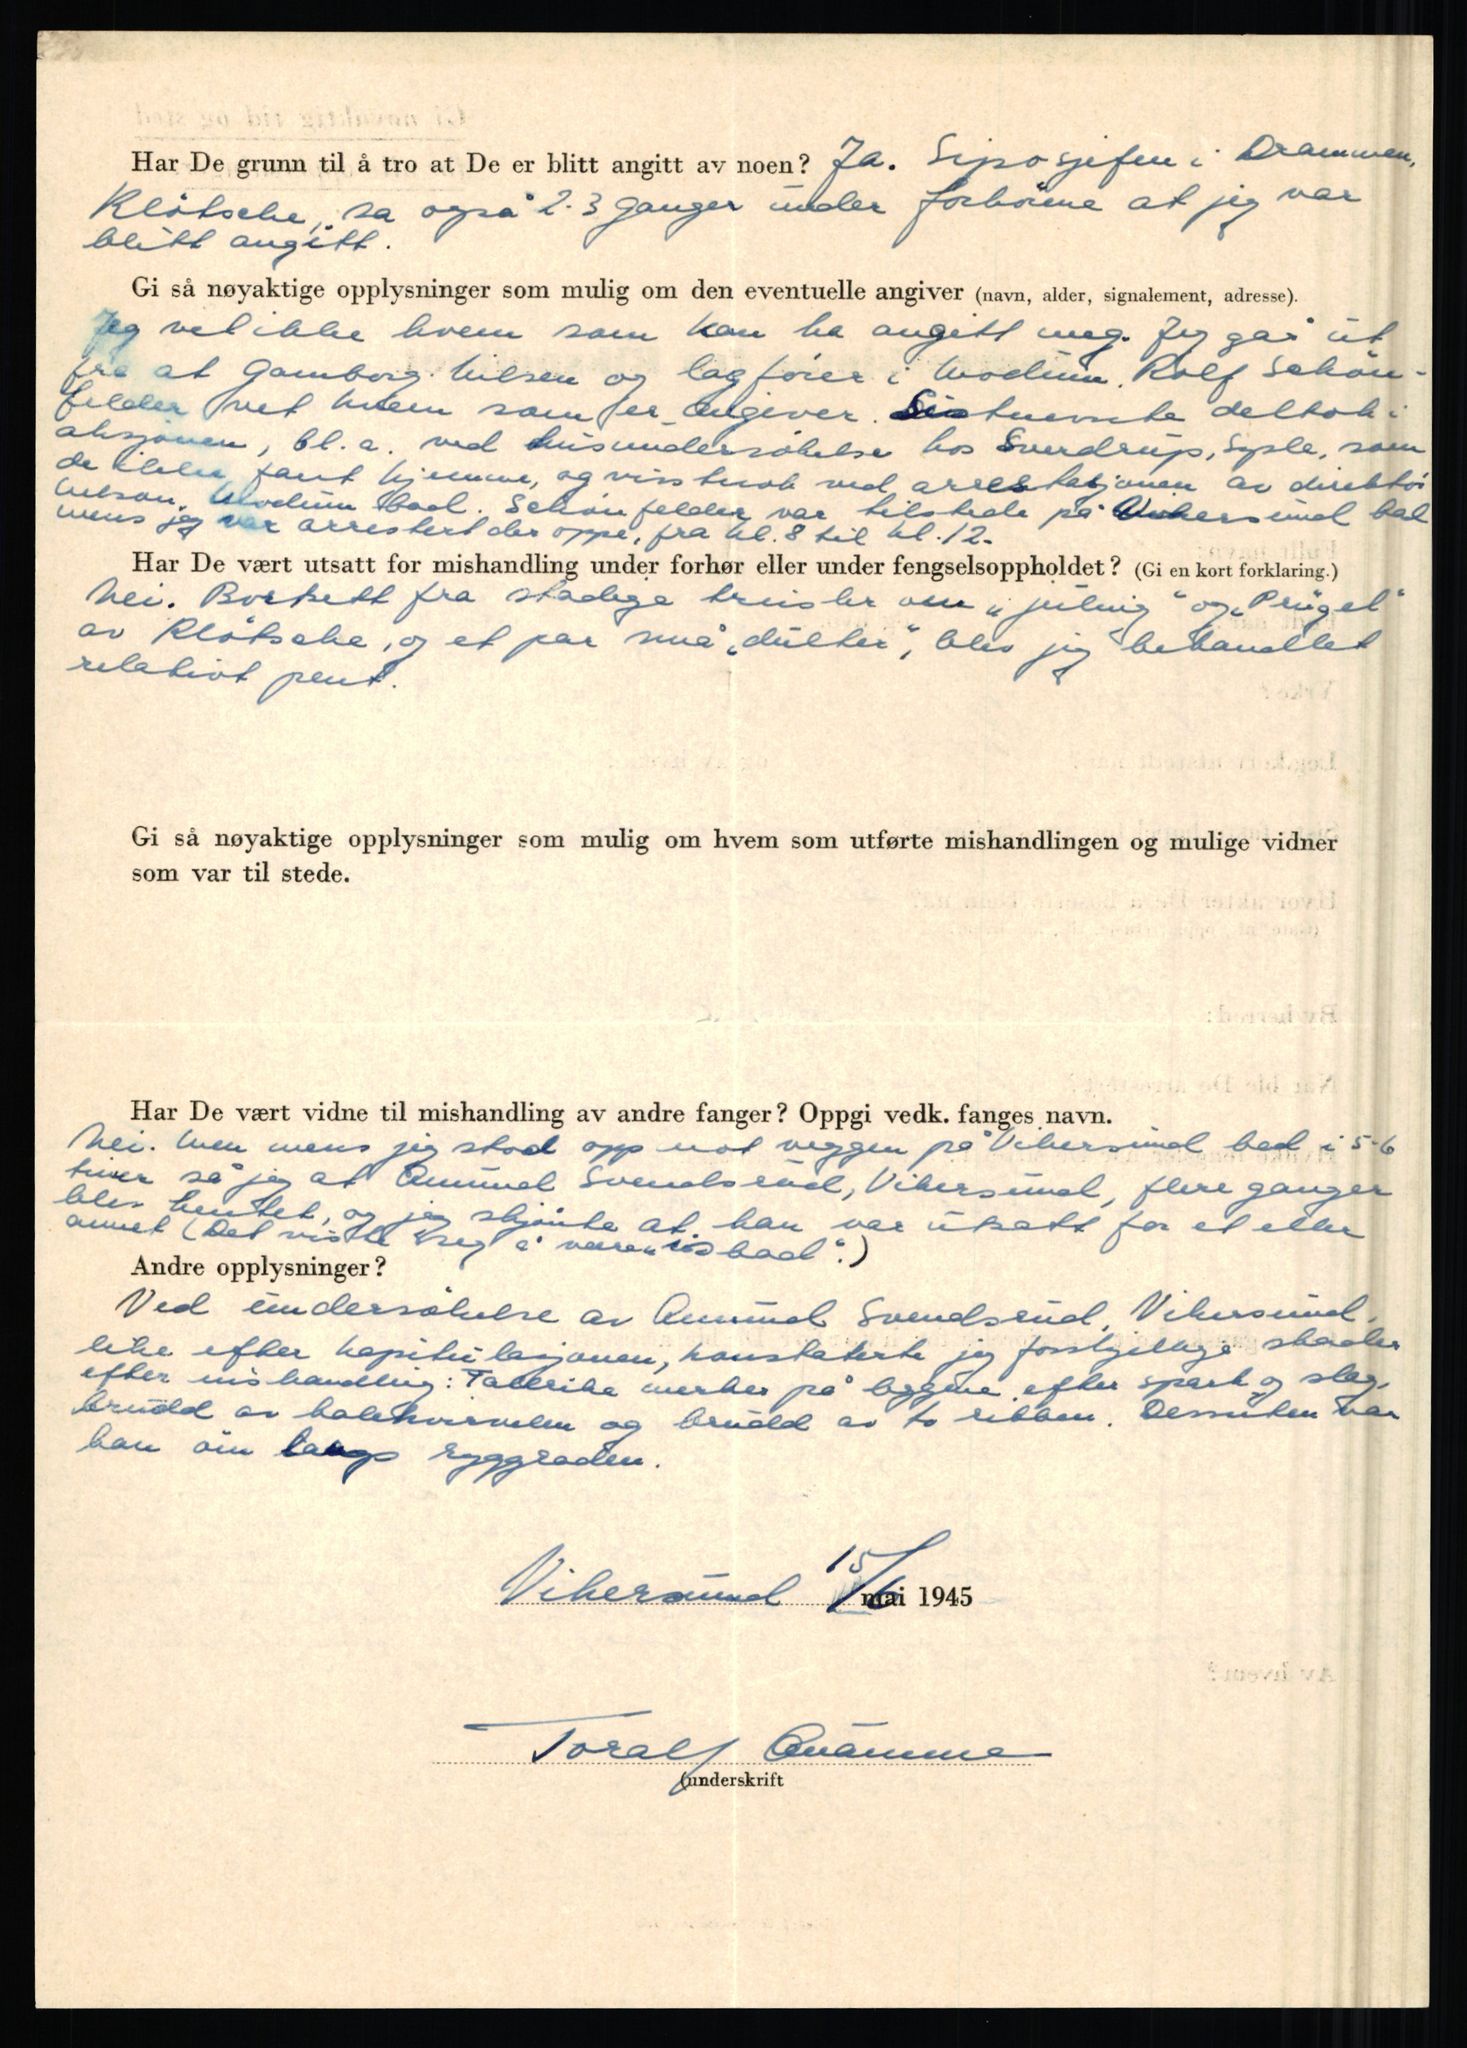 Har De grunn til å tro at De er blitt angitt av noen? Ja. Siposjefen i Drammen,
Klötsche, sa også 2-3 ganger under forhörene at jeg var
blitt angitt.
Gi så nøyaktige opplysninger som mulig om den eventuelle angiver (navn, alder, signalement, adresse).
Jeg vet ikke hvem som kan ha angitt meg. Jeg går ut
fra at Gamborg Nilsen og lagförer i Modum, Rolf Schön-
felder vet hvem som er angiver. Sistnevnte deltok i
aksjonen, bl.a. ved husundersökelse hos Sverdrup, Sysle, som
de ikke fant hjemme, og visstnok ved arrestasjonen av direktör
Nilson, Modum Bad. Schönfelder var tilstede på Vikersund bad
mens jeg var arrestert der oppe, fra kl. 8 til kl. 12.
Har De vært utsatt for mishandling under forhør eller under fengselsoppholdet? (Gi en kort forklaring.)
Nei. Bortsett fra stadige trusler om „juling“ og „Prügel“
av Klötsche, og et par små „dulter“, blev jeg behandlet
relativt pent.
Gi så nøyaktige opplysninger som mulig om hvem som utførte mishandlingen og mulige vidner
som var til stede.
Har De vært vidne til mishandling av andre fanger? Oppgi vedk. fanges navn.
Nei. Men mens jeg stod opp mot veggen på Vikersund bad i 5-6
timer så jeg at Amund Svendsrud, Vikersund, flere ganger
blev hentet, og jeg skjönte at han var utsatt for et eller
annet (Det viste seg å være „isbad“.)
Andre opplysninger?
Ved undersökelse av Amund Svendsrud, Vikersund,
like efter kapitulasjonen, konstaterte jeg forskjellige skader
efter mishandling: Tallrike merker på leggene efter spark og slag,
brudd av halehvirvelen og brudd av to ribben. Dessuten var
han öm langs ryggraden.
Vikersund 15/6 mai 1945
Toralf Qvamme
(underskrift